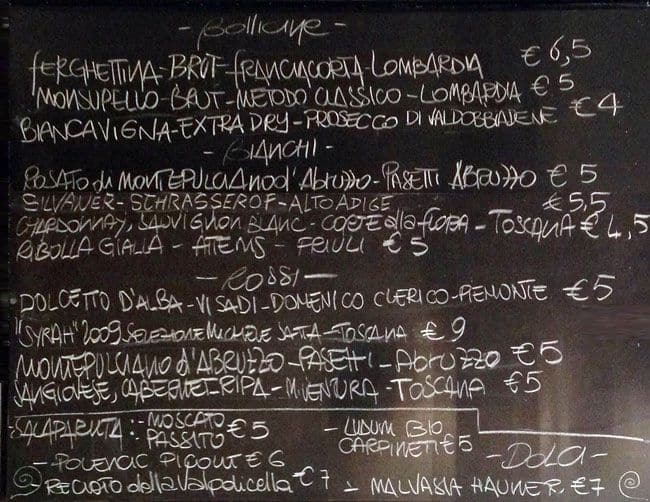 - Bollicine -
FERGHETTINA-BRUT-FRANCIACORTA-LOMBARDIA € 6,5
MONSUPELLO-BRUT-METODO CLASSICO-LOMBARDIA € 5
BIANCAVIGNA-EXTRA DRY-PROSECCO DI VALDOBBIADENE € 4
- BIANCHI -
ROSATO di MONTEPULCIANO d'ABRUZZO-PASETTI ABRUZZO € 5
SILVANER-SCHRASSEROF-ALTO ADIGE € 5,5
CHARDONNAY, SAUVIGNON BLANC-COSTE alla FLORA-TOSCANA € 4,5
RIBOLLA GIALLA - ATEMS - FRIULI € 5
- ROSSI -
DOLCETTO D'ALBA-VISADI-DOMENICO CLERICO-PIEMONTE € 5
"SYRAH" 2009 SELEZIONE MICHELE SATTA-TOSCANA € 9
MONTEPULCIANO d'ABRUZZO-PASETTI-ABRUZZO € 5
SANGIOVESE, CABERNET-RIPA-MIVENTURA-TOSCANA € 5
-SALAPARUTA:- MOSCATO
PASSITO € 5
- LUDUM BIO
CARPINETI € 5
- POLENCIC PICOLIT € 6
- DOLCI -
- RECIOTO della Valpolicella € 7
- MALVASIA HAUNER. € 7